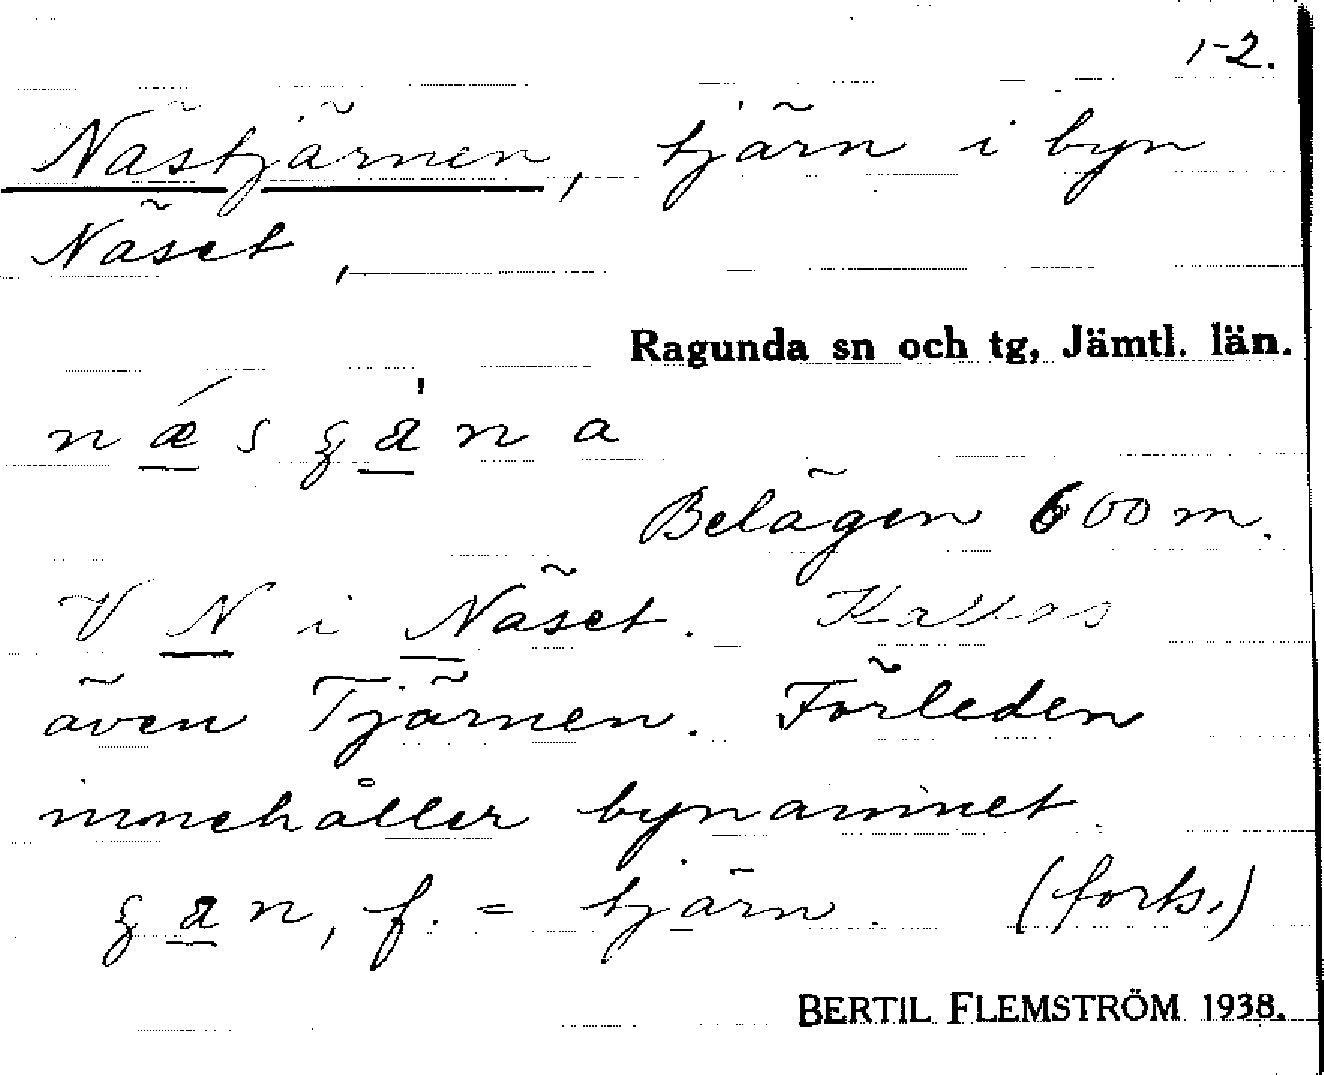 1-2.
Nästjärnen, tjärn i byn
Näset,
Ragunda sn och tg, Jämtl. län.
Belägen 600 m.
V N i Näset. Kallas
även Tjärnen. Förleden
innehåller bynamnet.
f. = tjärn. (forts.)
BERTIL FLEMSTRÖM 1938.